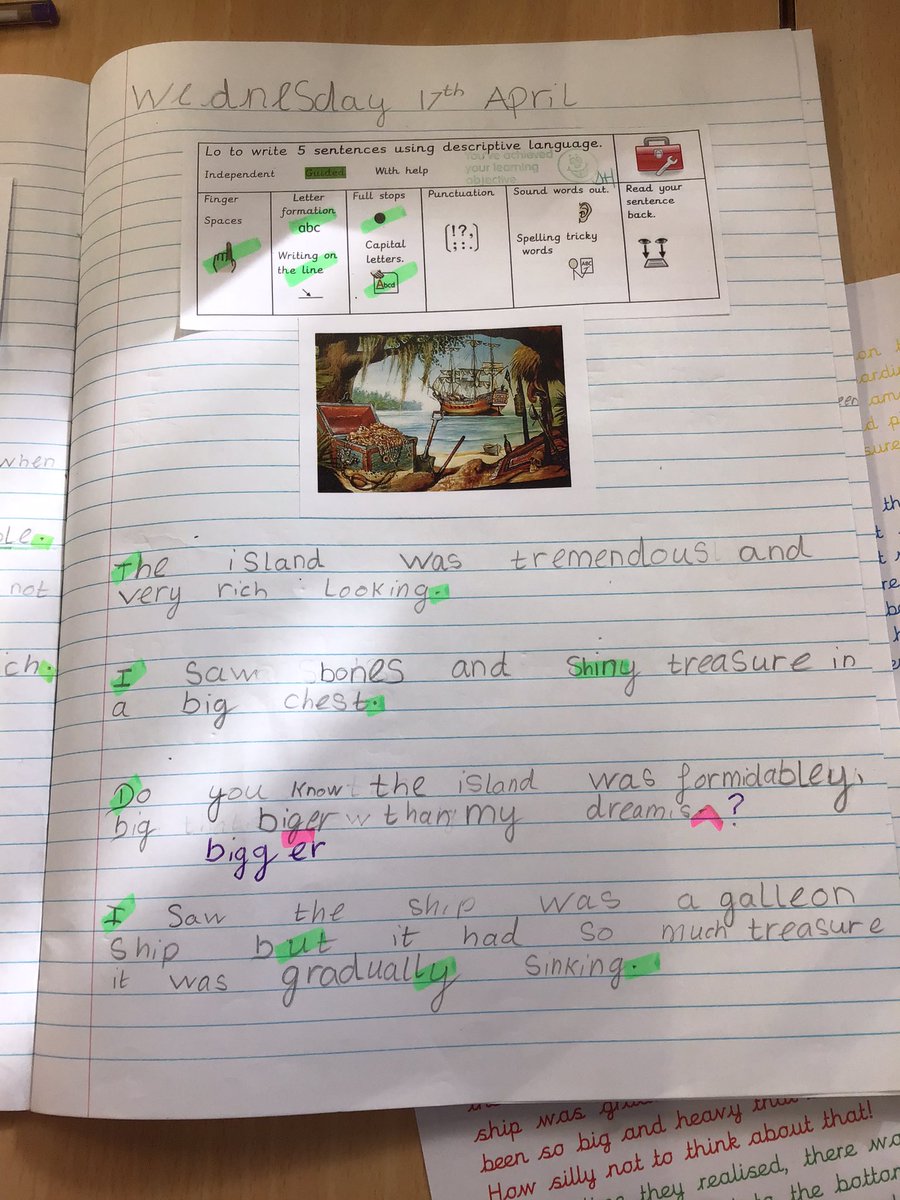 when
not
Wednesday 17th April
Lo to write 5 sentences using descriptive language.
Independent Guided With help
You've achieved
your learning
objective
AH
Finger
Spaces
Letter
formation
abc
Writing on
the line
Full stops
Capital
letters.
Abcd
Punctuation
(!?,
;:.)
Sound words out.
Spelling tricky
words
ABC
Read your
sentence
back.
The island was tremendous and
very rich looking.
I saw bones and shiny treasure in
a big chest.
Do you know the island was formidabley,
big biger than my dreams. ?
bigger
I saw the ship was a galleon
ship but it had so much treasure
it was gradually sinking.
ship was
been so big and heavy
How silly not to think about that!
they realised, there
to the bottom